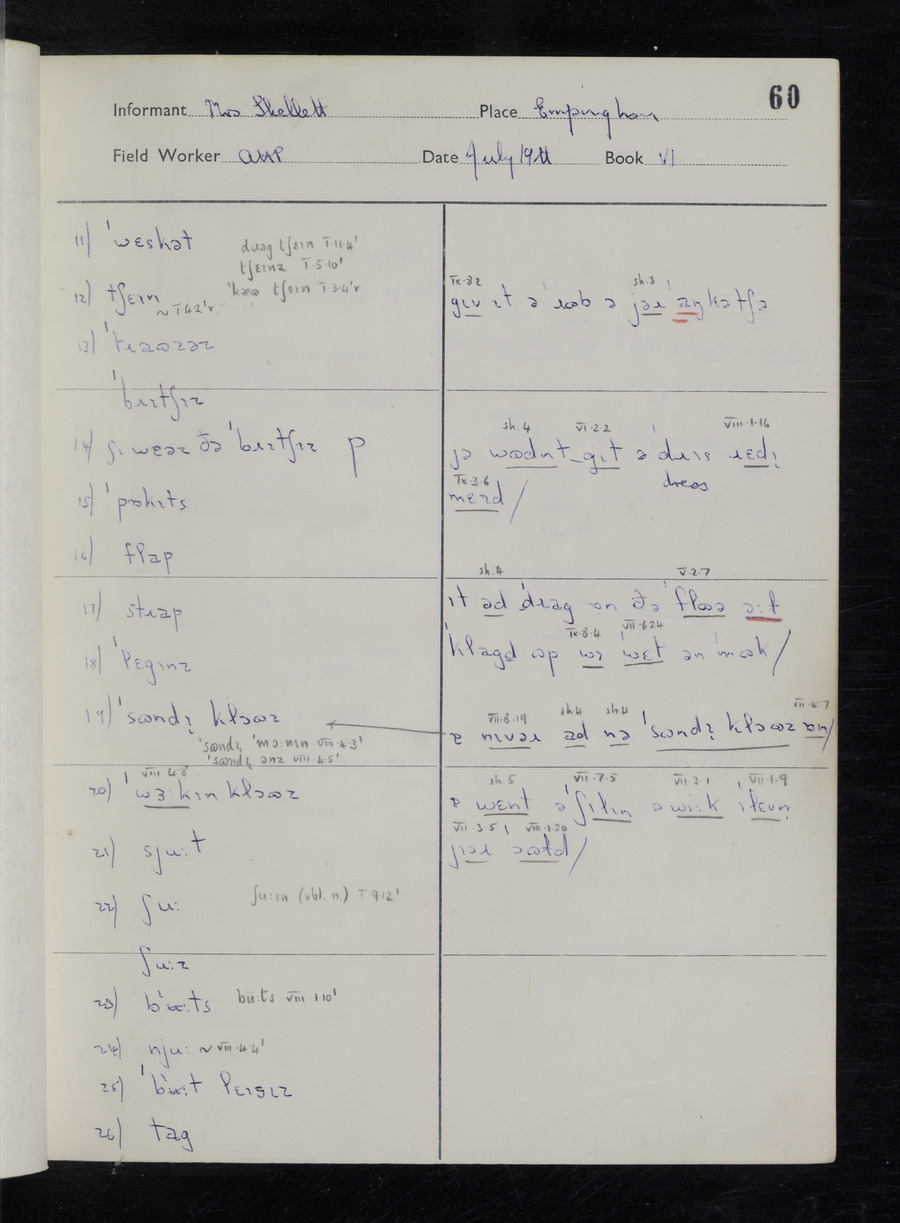 60
Informant Mrs Skellett Place Empingham
Field Worker Date July 19th Book VI
11) ˈwɛskət dɹag tʃɛɪn V·11·4ˈ
tʃɛɪnz V·5·10ˈ
12) tʃɛɪn tʃɛɪn V·3·4ˈ
13) ˈtɹaʊzəz
ˈbɹɪtʃɪz
14) ʃɪ wɛəz ðə ˈbɹɪtʃɪz p
15) ˈpɒkɪts
16) flap
17) stɹap
18) ˈlɛgɪnz
19) ˈsʊndɪ kləʊz
ˈsʊndɪ ˈmɔːnɪn VIII·4·3ˈ
VIII·4·5ˈ
VIII·4·8
20) ˈwɜːkɪn kləʊz
21) sjuːt
22) ʃuː ʃuːɪn (vbl. n.) V·9·12ˈ
ʃuːz
23) büːts VIII·1·10ˈ
24) njuː ~ VIII·4·4ˈ
25) lɛɪsɪz
26) tag
IX·8·2 sh.3
gɪv ɪt ə ˈɹʊb ə jəɹ aŋkətʃə
sh.4 VI·2·2 VIII·1·16
jə wʊdnt gɪt ə ˈdɹɪs ɹɛdɪ
dress
IX·3·6
mɛɪd /
sh.4 V·2·7
ɪt əd ˈdɹag ɒn ðə ˈflʊə
IX·8·4 VII·6·24
ˈklagd ʊp wɪ ˈwɛt ən mʊk /
VII·8·19 sh.4 sh.4 VII·4·7
nɪvəɹ ad nə ˈsʊndɪ kləʊz ɒn /
sh.5 VII·7·5 VII·3·1 VII·1·9
wɛnt əˈʃɪlɪn əwiːk
VII·3·5 VIII·1·20
jɪəɹ /